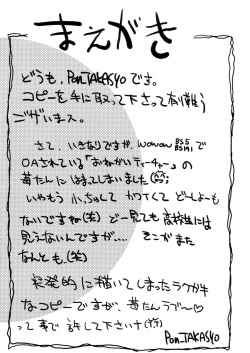 まえがき
どうも、Pon_TAKASYOです。
コピーを手に取って下さって有難う
ございます。
さて、いきなりですが、wowow BS5 BS191で
OAされている「おねがいティーチャー」の
苺たんにはまってしまいました(^^;
いやもう小っちゃくてカワイくてどーしよーも
ないですね(笑)どー見ても高校生には
見えないんですが‥‥そこがまた
なんとも。(笑)
突発的に描いてしまったラクガキ
なコピーですが、苺たんラブ〜♡
って事で許して下さいナ(^^)
Pon_TAKASYO